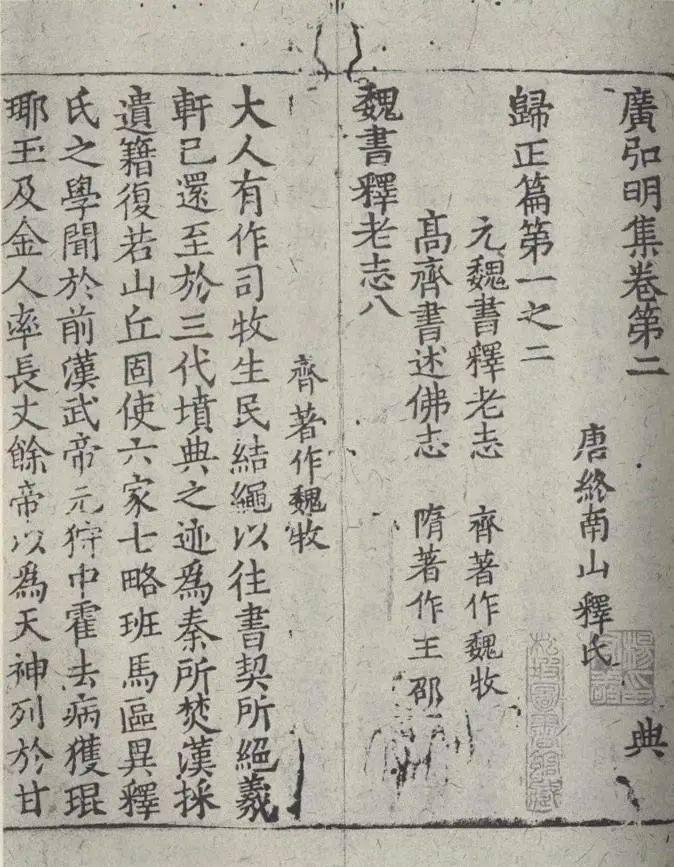 廣弘明集卷第二 典
唐終南山釋氏
歸正篇第一之二
元魏書釋老志 齊著作魏牧
高齊書述佛志 隋著作王邵
魏書釋老志八
齊著作魏牧
大人有作司牧生民結繩以往書契所絕羲
軒已還至於三代墳典之迹爲秦所焚漢採
遺籍復若山丘固使六家七略班馬區異釋
氏之學聞於前漢武帝元狩中霍去病獲琨
瑘王及金人率長丈餘帝以爲天神列於甘
松坡圖書館藏